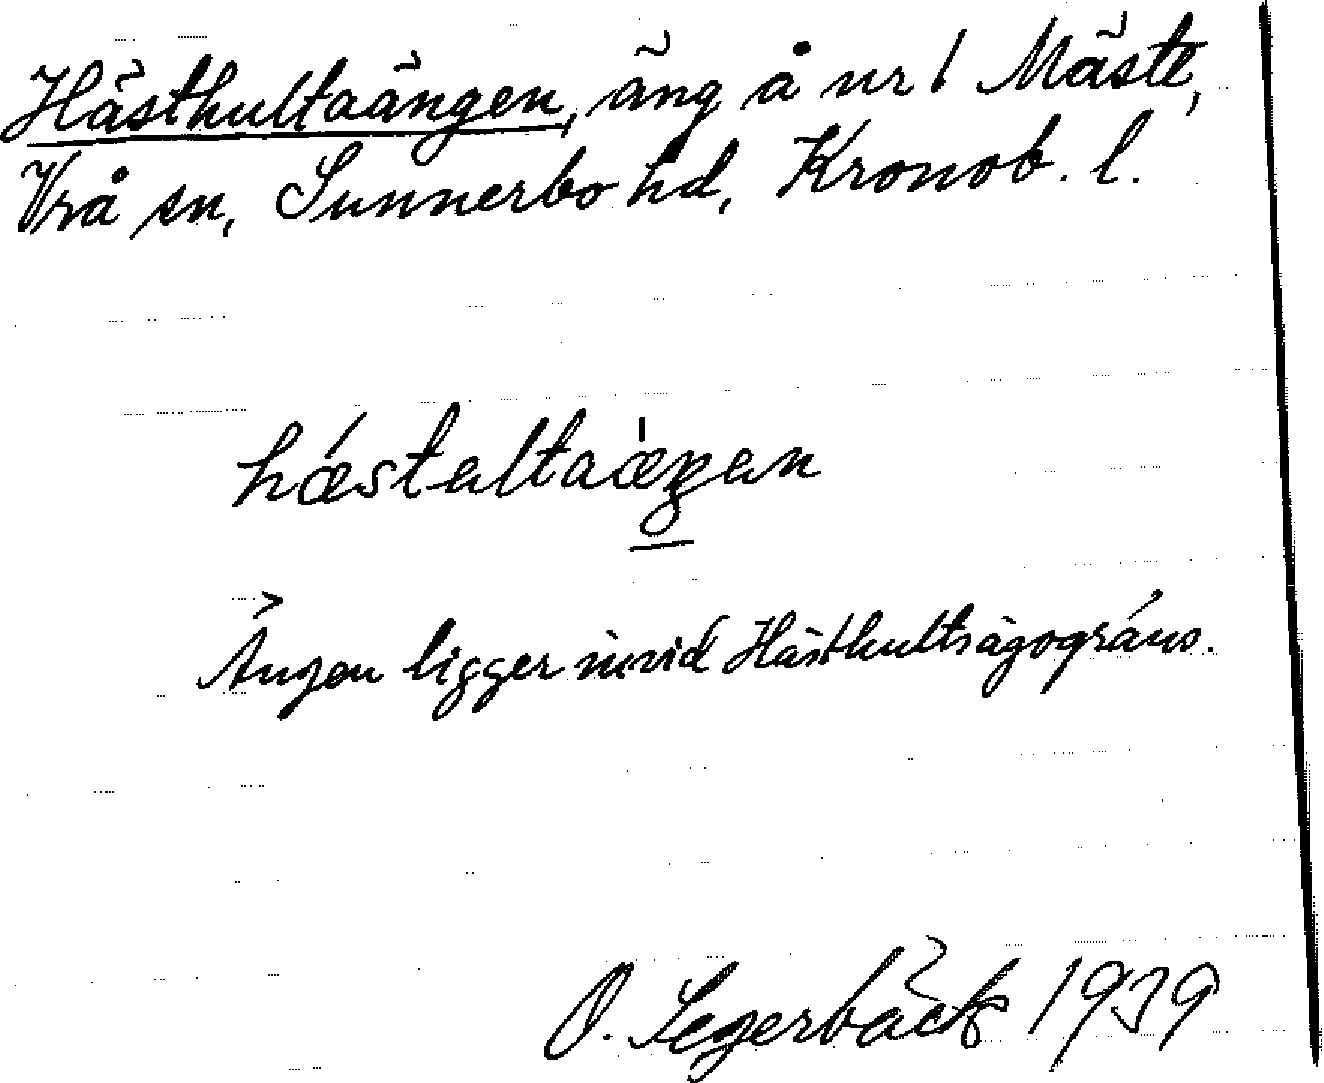 Hästhultaängen, äng å nr 1 Mäste,
Vrå sn, Sunnerbo hd, Kronob. l.
hǽstaltaæ̍ŋan
Ängen ligger invid Hästhultsägogräns.
O. Segerbäck 1939